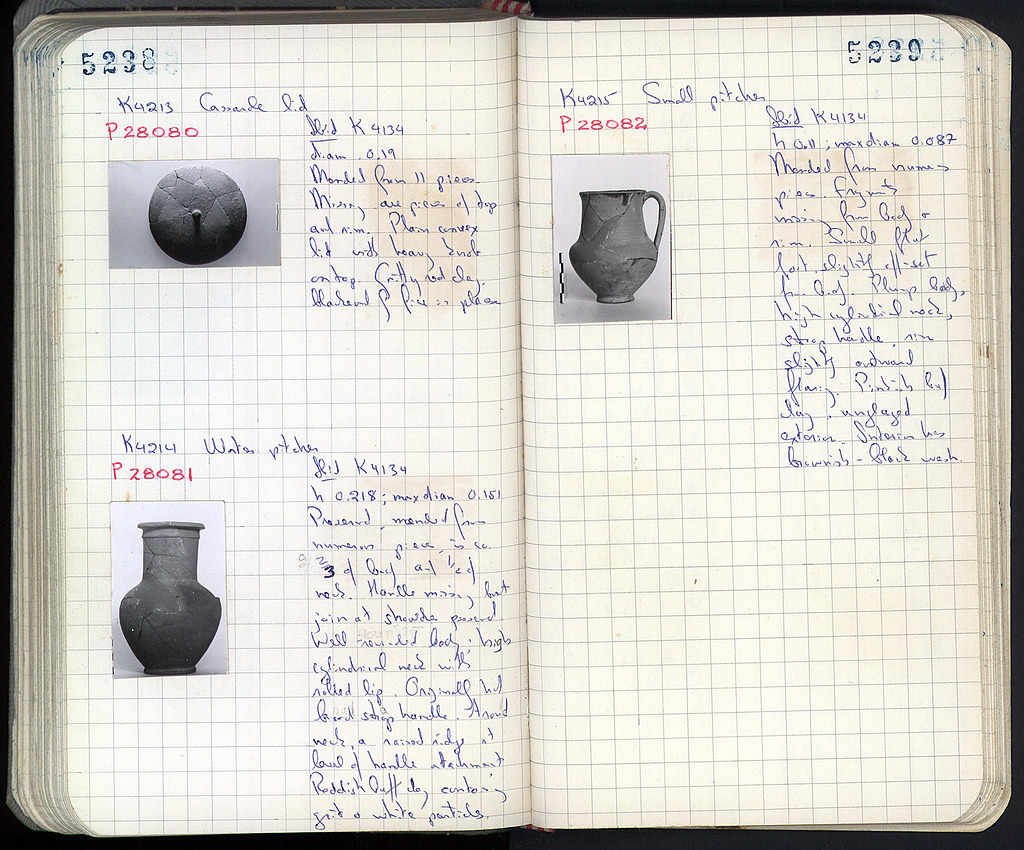 5238
K4213 Casserole lid
P28080
Ibid K4134
diam. 0.19
Mended from 11 pieces.
Missing are pieces of top
and rim. Plain convex
lid with heavy knob
on top. Gritty red clay.
blackened by fire in places
K4214 Water pitcher
P28081
Ibid K4134
h 0.218; max diam 0.151
Preserved, mended from
numerous pieces, is ca.
2/3 of body and 1/2 of
neck. Handle missing but
join at shoulder preserved
Well rounded body; high
cylindrical neck with
rolled lip. Originally had
broad strap handle. Around
neck, a raised ridge at
level of handle attachment
Reddish buff clay containing
grit & white particles.
5239
K4215 Small pitcher
P28082
Ibid K4134
h 0.11; max diam 0.087
Mended from numerous
pieces. Fragments
missing from body &
rim. Small flat
foot, slightly off-set
from body. Plump body,
high cylindrical neck,
strap handle, rim
slightly outward
flaring. Pinkish buff
clay, unglazed
exterior. Interior has
brownish-black wash.